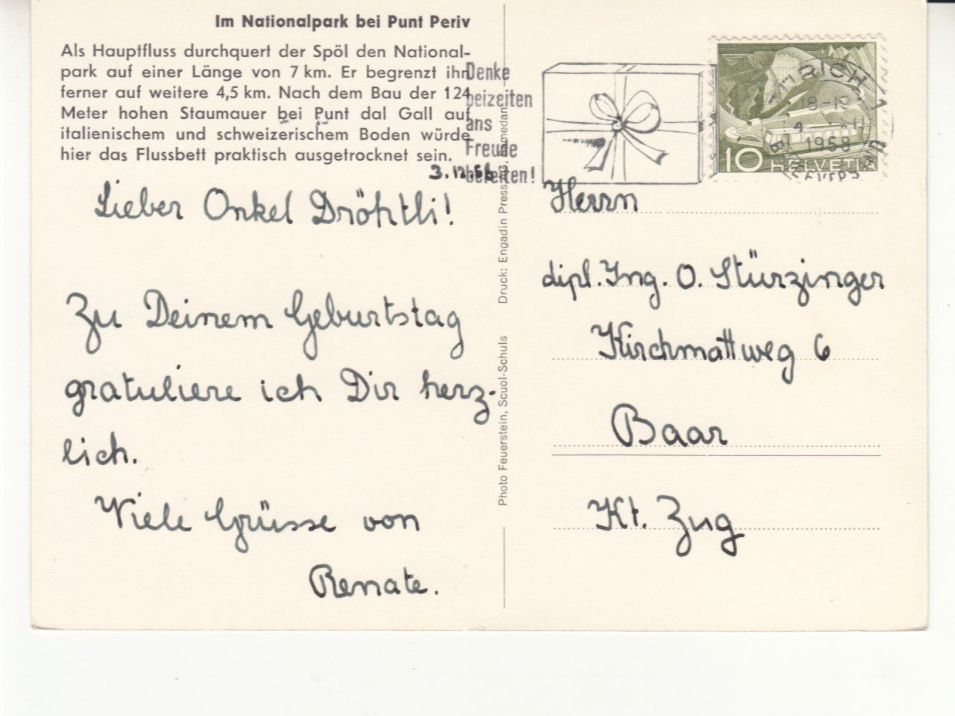 Im Nationalpark bei Punt Periv
Als Hauptfluss durchquert der Spöl den National-
park auf einer Länge von 7 km. Er begrenzt ihn
ferner auf weitere 4,5 km. Nach dem Bau der 124
Meter hohen Staumauer bei Punt dal Gall auf
italienischem und schweizerischem Boden würde
hier das Flussbett praktisch ausgetrocknet sein.
Lieber Onkel
Zu Deinem Geburtstag
gratuliere ich Dir herz-
lich.
Viele Grüsse von
Renate.
Photo Feuerstein, Scuol-Schuls Druck: Engadin Press
Denke
beizeiten
ans
Freude
bereiten!
1958
10 HELVETIA
Herrn
dipl. Ing. O. Stürzinger
Kirchmattweg 6
Baar
Kt. Zug